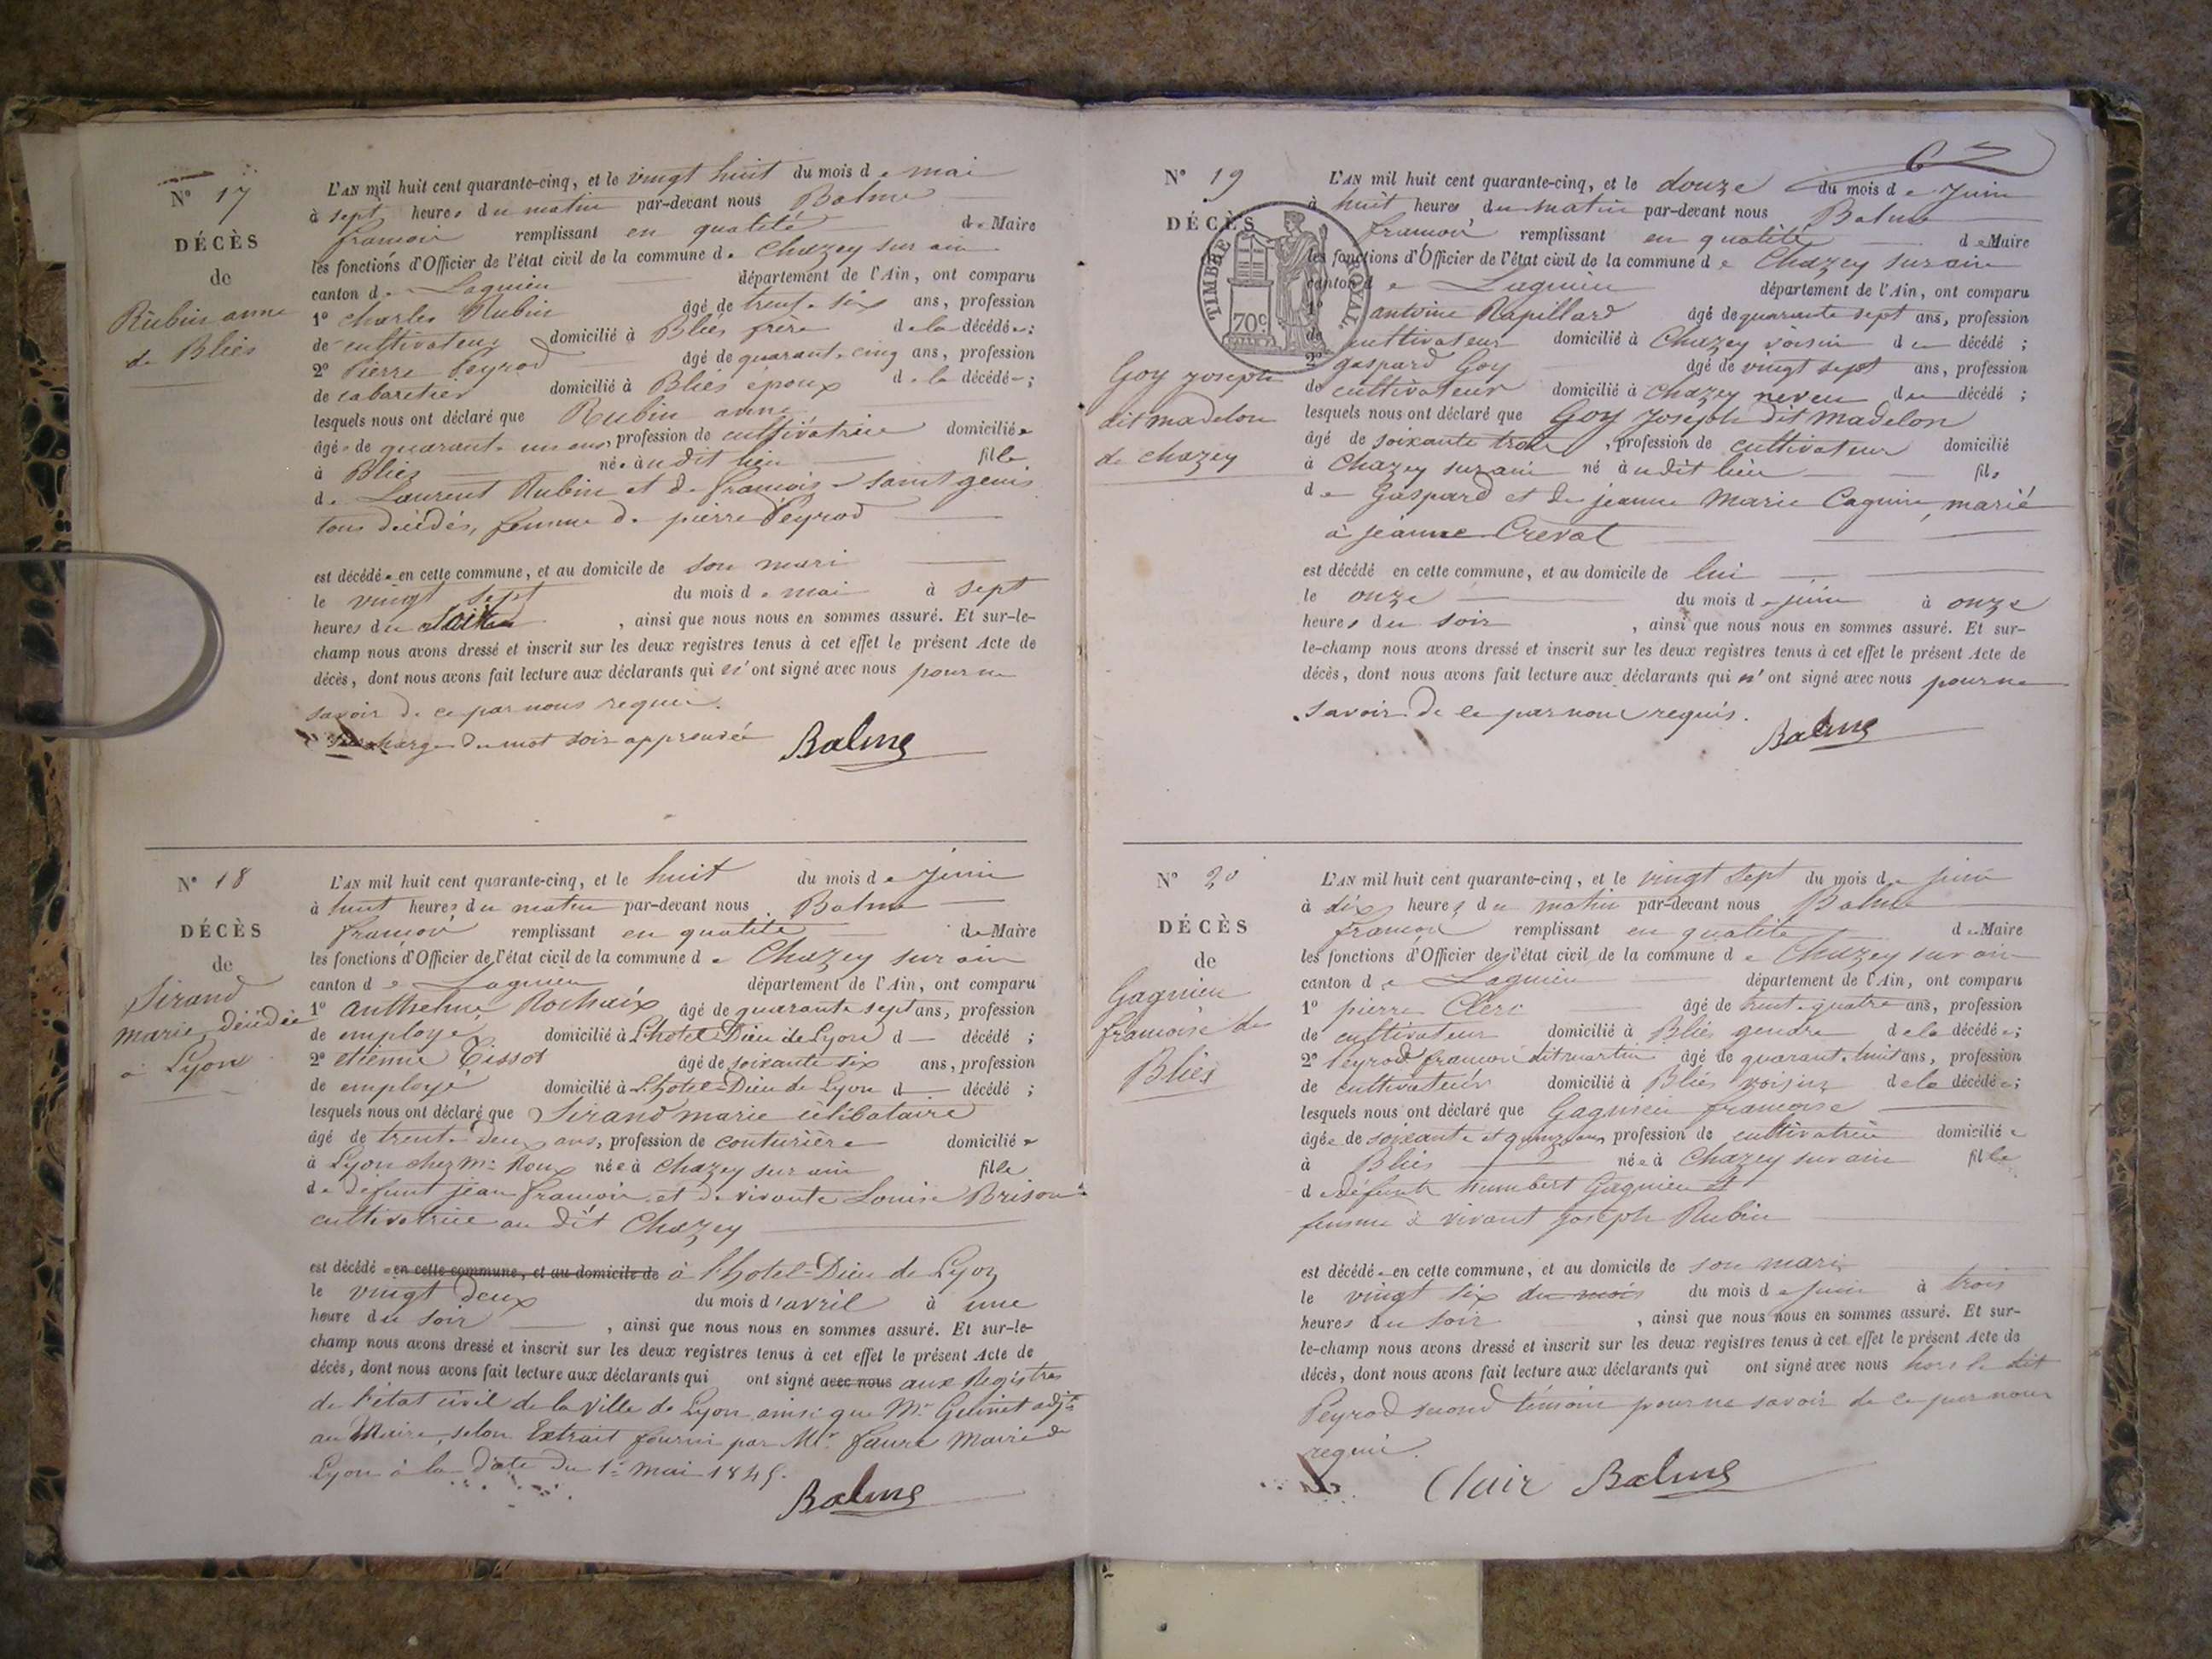 N° 17
DÉCÈS
de
Rubin anne
de Bliès
L'AN mil huit cent quarante-cinq, et le vingt huit du mois de mai
à sept heures du matin par-devant nous Balme
françois remplissant en qualité de Maire
les fonctions d'Officier de l'état civil de la commune de Chazey sur ain
canton de Lagnieu département de l'Ain, ont comparu
1° Charles Rubin âgé de trente six ans, profession
de cultivateur domicilié à Bliès frère de la décédée;
2° Pierre Peyrod âgé de quarante cinq ans, profession
de cabaretier domicilié à Bliès époux de la décédée;
lesquels nous ont déclaré que Rubin anne
âgée de quarante un ans, profession de cultivatrice domiciliée
à Bliès née audit lieu fille
de Laurent Rubin et de françoise saint genis
tous décédés, femme de pierre Peyrod
est décédée en cette commune, et au domicile de son mari
le vingt sept du mois de mai à sept
heures du soir, ainsi que nous nous en sommes assuré. Et sur-le-
champ nous avons dressé et inscrit sur les deux registres tenus à cet effet le présent Acte de
décès, dont nous avons fait lecture aux déclarants qui n'ont signé avec nous pour ne
savoir de ce par nous requis.
surcharge du mot soir approuvée Balme
N° 18
DÉCÈS
de
Sirand
marie, décédée
à Lyon
L'AN mil huit cent quarante-cinq, et le huit du mois de juin
à huit heures du matin par-devant nous Balme
françois remplissant en qualité de Maire
les fonctions d'Officier de l'état civil de la commune de Chazey sur ain
canton de Lagnieu département de l'Ain, ont comparu
1° anthelme Rochaix âgé de quarante sept ans, profession
de employé domicilié à L'hotel-Dieu de Lyon d décédé;
2° etienne Tissot âgé de soixante six ans, profession
de employé domicilié à L'hotel-Dieu de Lyon d décédé;
lesquels nous ont déclaré que Sirand marie célibataire
âgé de trente deux ans, profession de couturière domiciliée
à Lyon chez Mr Roux née à Chazey sur ain fille
de defunt jean françois et de vivante Louise Brison
cultivatrice au dit Chazey
est décédée en cette commune, et au domicile de à l'hotel-Dieu de Lyon
le vingt deux du mois d'avril à une
heure du soir, ainsi que nous nous en sommes assuré. Et sur-le-
champ nous avons dressé et inscrit sur les deux registres tenus à cet effet le présent Acte de
décès, dont nous avons fait lecture aux déclarants qui ont signé avec nous aux Registres
de l'état civil de la ville de Lyon ainsi que Mr Guinet adjt
au Maire, selon Extrait fourni par Mr. faure Maire de
Lyon à la date du 1er mai 1845.
Balme
62
N° 19
DÉCÈS
TIMBRE ROYAL
70c
Goy joseph
dit madelon
de chazey
L'AN mil huit cent quarante-cinq, et le douze du mois de Juin
à huit heures du matin par-devant nous Balme
françois remplissant en qualité de Maire
les fonctions d'Officier de l'état civil de la commune de Chazey sur ain
canton de Lagnieu département de l'Ain, ont comparu
1° antoine Rapillard âgé de quarante sept ans, profession
de cultivateur domicilié à Chazey voisin du décédé;
2° gaspard Goy âgé de vingt sept ans, profession
de cultivateur domicilié à Chazey neveu du décédé;
lesquels nous ont déclaré que Goy joseph dit Madelon
âgé de soixante trois, profession de cultivateur domicilié
à Chazey sur ain né audit lieu fils
de Gaspard et de jeanne Marie Cagnin, marié
à jeanne Crevat
est décédé en cette commune, et au domicile de lui
le onze du mois de juin à onze
heures du soir, ainsi que nous nous en sommes assuré. Et sur-
le-champ nous avons dressé et inscrit sur les deux registres tenus à cet effet le présent Acte de
décès, dont nous avons fait lecture aux déclarants qui n'ont signé avec nous pour ne
savoir de ce par nous requis.
Balme
N° 20
DÉCÈS
de
Gagnieu
françoise de
Bliès
L'AN mil huit cent quarante-cinq, et le vingt sept du mois de juin
à dix heures du matin par-devant nous Balme
françois remplissant en qualité de Maire
les fonctions d'Officier de l'état civil de la commune de Chazey sur ain
canton de Lagnieu département de l'Ain, ont comparu
1° pierre Clerc âgé de trente quatre ans, profession
de cultivateur domicilié à Bliès gendre de la décédée;
2° Peyrod françois dit martin âgé de quarante huit ans, profession
de cultivateur domicilié à Bliès voisin de la décédée;
lesquels nous ont déclaré que Gagnieu françoise
âgée de soixante et quinze ans profession de cultivatrice domiciliée
à Bliès née à Chazey sur ain fille
de défunt humbert Gagnieu et
femme à vivant joseph Rubin
est décédée en cette commune, et au domicile de son mari
le vingt six du mois du mois de juin à trois
heures du soir, ainsi que nous nous en sommes assuré. Et sur-
le-champ nous avons dressé et inscrit sur les deux registres tenus à cet effet le présent Acte de
décès, dont nous avons fait lecture aux déclarants qui ont signé avec nous hors le dit
Peyrod second témoin pour ne savoir de ce par nous
requis.
Clair Balme